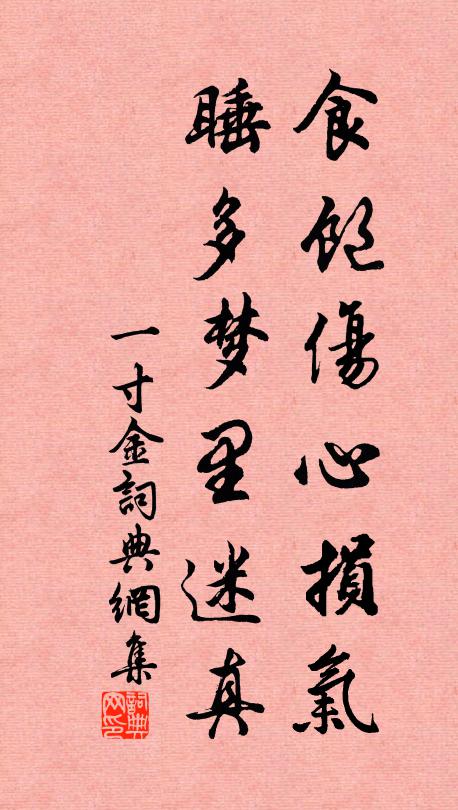 食飽傷心損氣
睡多梦里迷真
一寸金詞典網集
詞典网印